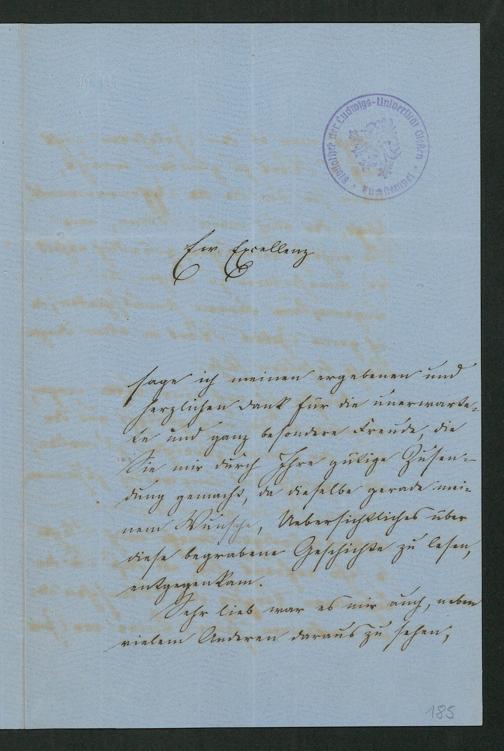 Bibliothek der Ludwigs-Universität Gießen
Ew Excellenz
sage ich meinen ergebenen und
herzlichen Dank für die unerwarte-
te und ganz besondere Freude, die
Sie mir durch Ihre gütige Zusen-
dung gemacht, da dieselbe gerade mei-
nem Wunsche, Uebersichtliches über
diese begrabene Geschichte zu lesen,
entgegenkam.
Sehr lieb war es mir auch, neben
vielem Anderen daraus zu sehen,
185